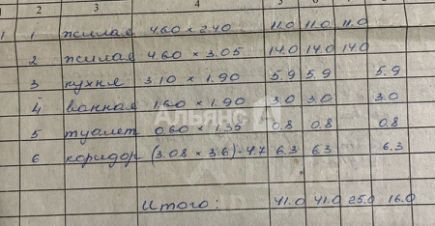 1 2 3 4 5 6 7
1 1 жилая 4.60 × 2.40 11.0 11.0 11.0
2 жилая 4.60 × 3.05 14.0 14.0 14.0
3 кухня 3.10 × 1.90 5.9 5.9 5.9
4 ванная 1.60 × 1.90 3.0 3.0 3.0
АЛЬЯНС
5 туалет 0.60 × 1.35 0.8 0.8 0.8
6 коридор (3.08 × 3.6) - 4.7 6.3 6.3 6.3
Итого: 41.0 41.0 25.0 16.0